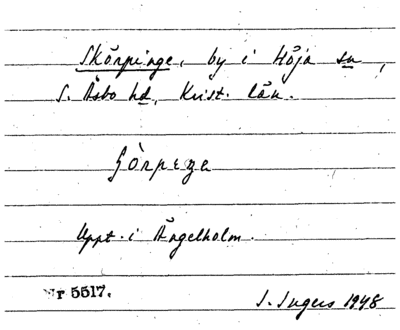 Skörpinge, by i Höja sn,
S. Åsbo hd, Krist. län.
Uppt. i Ängelholm.
Nr 5517. I. Ingers 1948